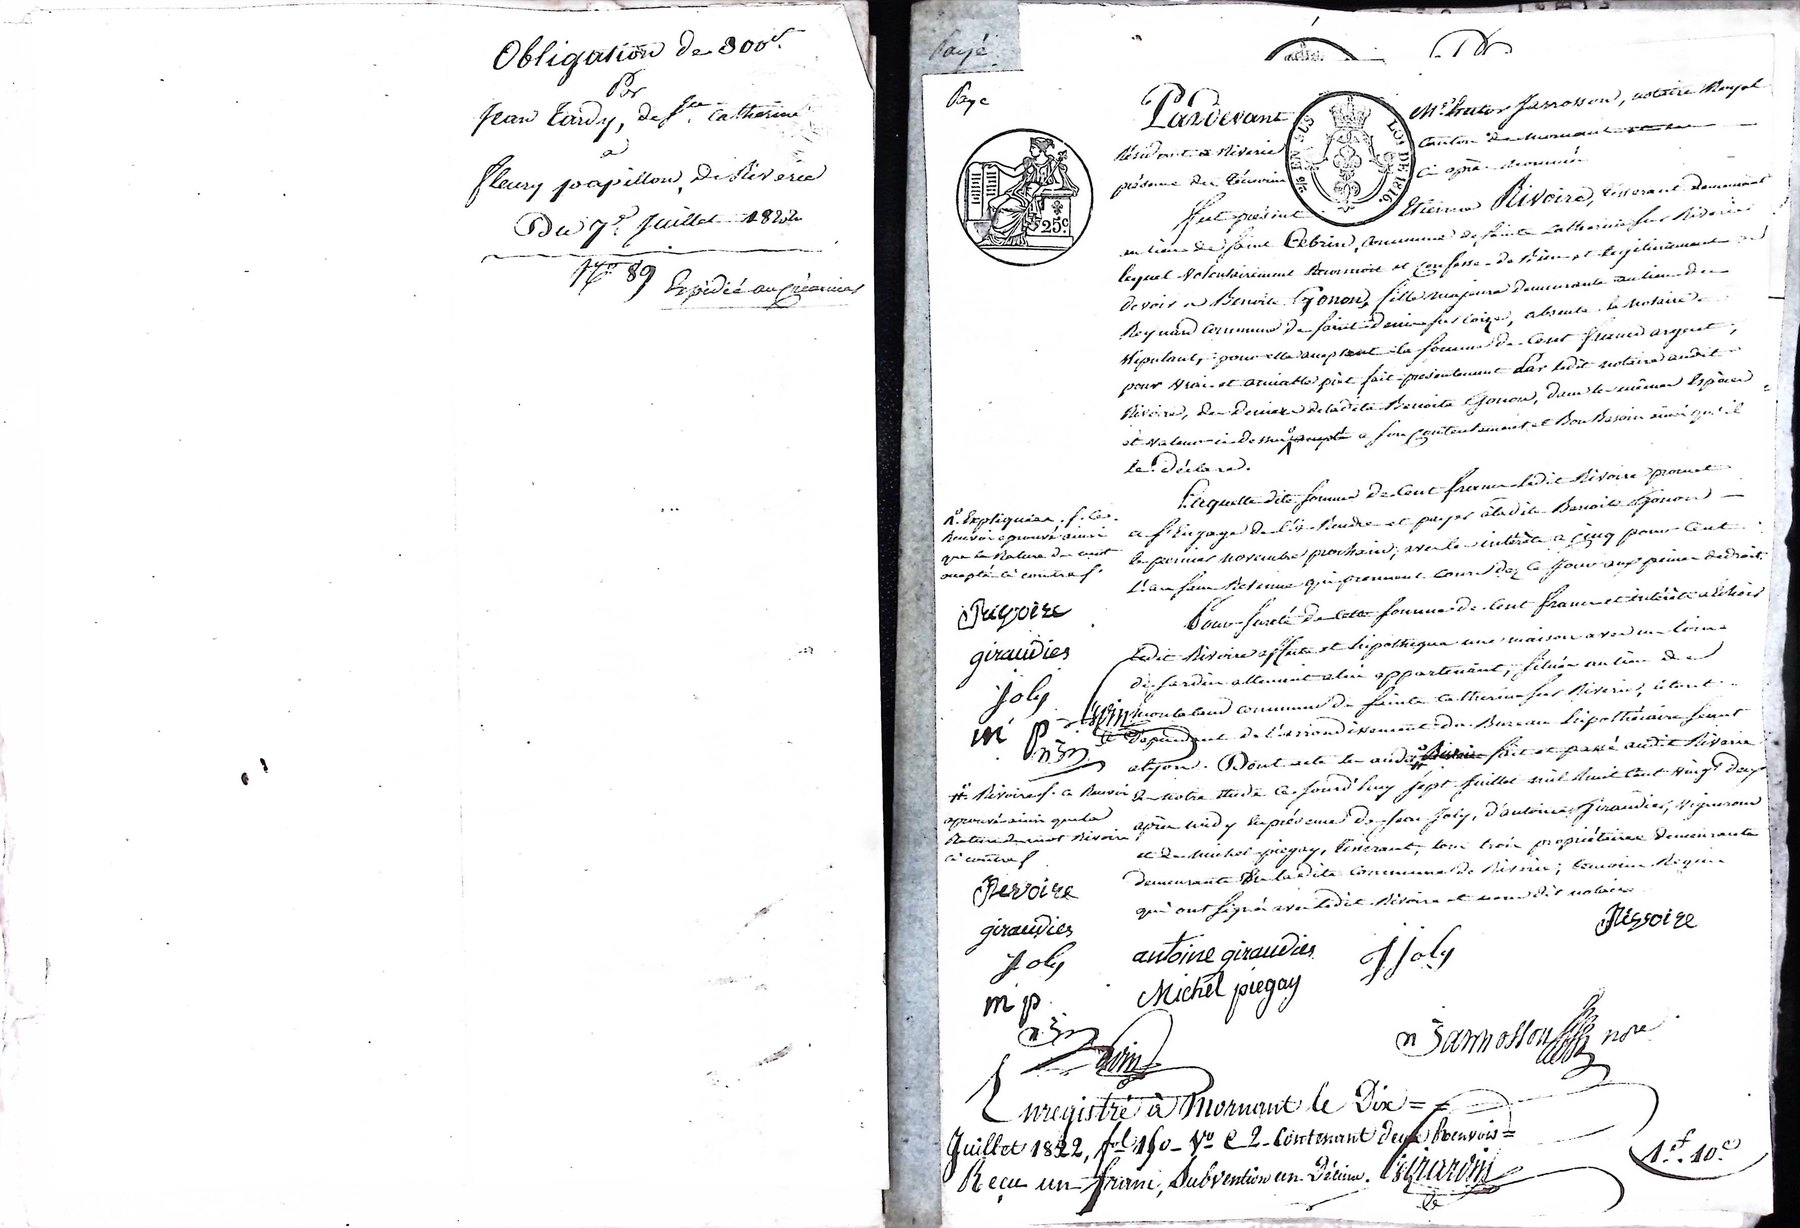 Obligation de 800f.
Par
Jean Tardy, de Ste. Catherine
a
fleury papillon, de Riverie
Du 7 Juillet 1822
No 89
Expédié au Créancier
Payé
Paye
25c.
EN SUS
LOI DE 1816
Pardevant Me. Jarrosson, notaire Royal
Résidant à Riverie Canton de Mornant
présence des témoins ci après nommés
fut présent Etienne Rivoire, tisserant demeurant
au lieu de Saint Cebrin, commune de Sainte Catherine sur Riverie
lequel volontairement Reconnoit et confesse de bien et légitimement
devoir a Benoite Gonon, fille majeure demeurante au lieu de
Reynard commune de Saint denis sur Coize, absente le notaire
stipulant, pour elle acceptant la somme de Cent francs argent,
pour vrai et amiable prêt fait presentement par ledit notaire audit
Rivoire, des deniers de ladite Benoite Gonon, dans les mêmes Espèces
et valeur ci dessus a son contentement et Bon Besoin ainsi qu'il
le déclare.
Laquelle dite somme de Cent francs ledit Rivoire promet
et s'Engage de Rendre et payer à ladite Benoite Gonon
le premier novembre prochain, avec les intérêts a cinq pour Cent
l'an sans Retenue qui prennent cours dez ce jour aux peines de droit.
Pour sureté de cette somme de Cent francs et intérêts a échoir
ledit Rivoire affecte et hipothèque une maison avec un
de jardin attenant a lui appartenant, située au lieu de
commune de Sainte Catherine sur Riverie, étant
Dépendant de l'arrondissement du Bureau hipothécaire séant
a Lyon. Dont acte le audit Rivoire fait et passé audit Riverie
En notre Etude ce jourd'huy sept Juillet mil huit Cent vingt deux
après midy En présence de Jean Joly, d'antoine Giraudier, vigneron
et de Michel piegay, tisserant, tous trois propriétaires demeurants
demeurants En ladite commune de Riverie, témoins Requis
qui ont signé avec ledit Rivoire et nous dit notaire
Renvoi aprouvé ainsi
que la Rature du mot
accepté ci contre
Revoire
giraudier
Joly
m p
Rivoire ce Renvoi
aprouvé ainsi que la
Rature du mot Rivoire
ci contre
Revoire
giraudier
Joly
m p
Revoire
antoine giraudier
J Joly
Michel piegay
Jarrosson nore
Enregistré à Mornant le Dix
Juillet 1822, fol 150 Vo C 2 Contenant deux Renvois
Reçu un franc, Subvention un Décime. Girardin
1f. 10c